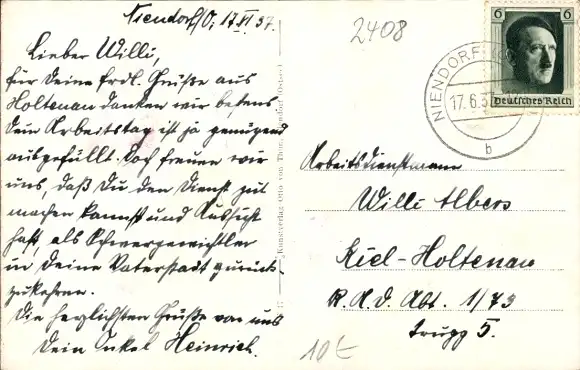 Niendorf/O, 17.VI.37.
Lieber Willi,
für Deine frdl. Grüße aus
Holtenau danken wir bestens
Dein Arbeitstag ist ja genügend
ausgefüllt. Doch freuen wir
uns, daß Du den Dienst gut
machen kannst und Aussicht
hast, als Schwergewichtler
in Deine Vaterstadt zurück-
zukehren.
Die herzlichsten Grüße von uns
Dein Onkel Heinrich.
Kunstverlag Otto von
2408
6 6
Deutsches Reich
NIENDORF
17.6.3
b
Arbeitsdienstmann
Willi Albers
Kiel-Holtenau
R.A.D. Abt. 1/73
Trupp 5.
10